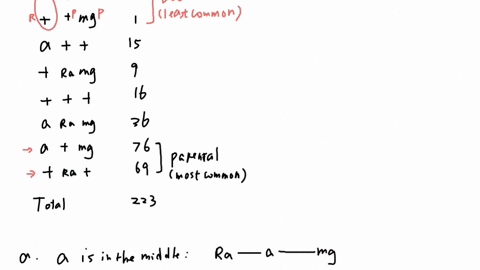 R + +P mg P 1 (least common)
a + + 15
+ Ra mg 9
+ + + 16
a Ra mg 36
→ a + mg 76
→ + Ra + 69
parental
(most common)
Total 223
a. a is in the middle: Ra — a — mg